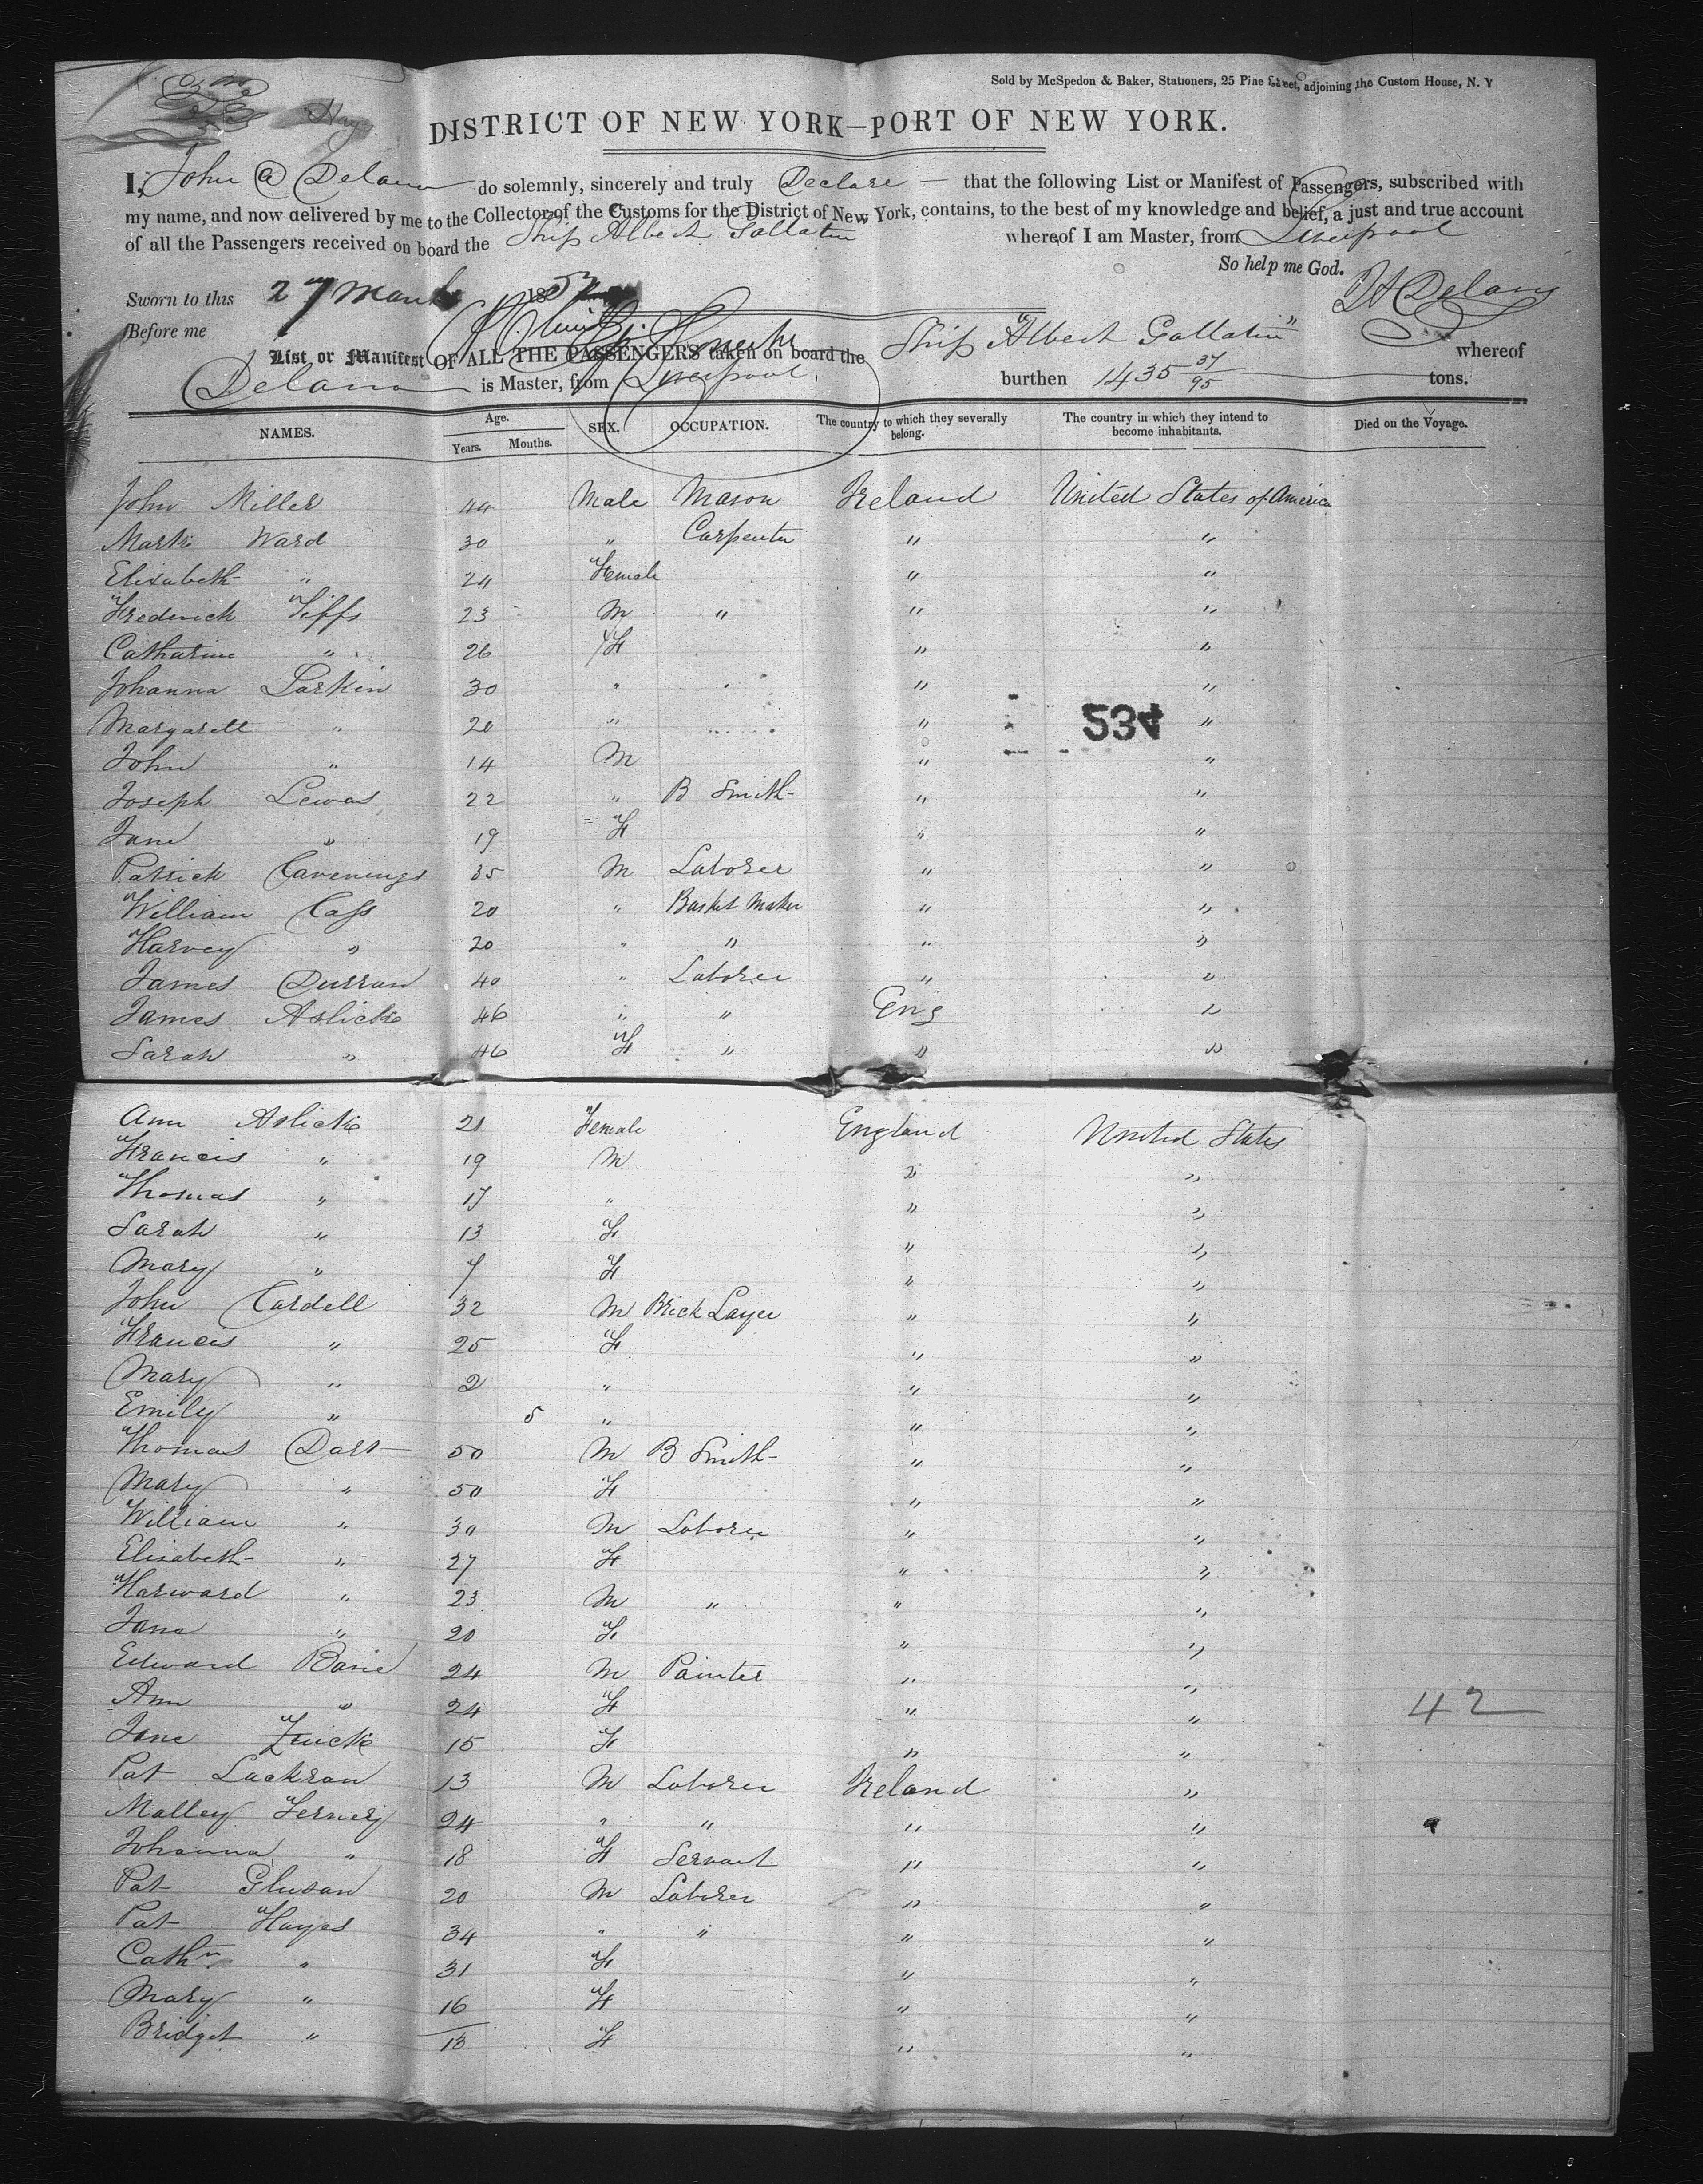 Sold by McSpedon & Baker, Stationers, 25 Pine Street, adjoining the Custom House, N. Y
DISTRICT OF NEW YORK—PORT OF NEW YORK.
I, John A Delano do solemnly, sincerely and truly Declare — that the following List or Manifest of Passengers, subscribed with
my name, and now delivered by me to the Collector of the Customs for the District of New York, contains, to the best of my knowledge and belief, a just and true account
of all the Passengers received on board the Ship Albert Gallatin whereof I am Master, from Liverpool
So help me God.
Sworn to this 27 March 185
Before me
List or Manifest OF ALL THE PASSENGERS taken on board the Ship "Albert Gallatin" whereof
Delano is Master, from Liverpool burthen 1435 37/95 tons.
NAMES. Age. Years. Months. SEX. OCCUPATION. The country to which they severally belong. The country in which they intend to become inhabitants. Died on the Voyage.
John Miller 44 Male Mason Ireland United States of America
Mark Ward 30 " Carpenter " "
Elisabeth " 24 Female " "
Frederick 23 M " " "
Catharine " 26 F " "
Johanna Larkin 30 " " "
Margarett " 20 " " "
534
John " 14 M " "
Joseph Lewas 22 " B Smith " "
Jane " 19 F " "
Patrick Cavenings 35 M Laborer " "
William Cass 20 " Basket Maker " "
Harvey " 20 " " " "
James Durran 40 " Laborer " "
James Aslicke 46 " " Eng "
Sarah " 46 F " " "
Ann Aslicke 21 Female England United States
Francis " 19 M " "
Thomas " 17 " " "
Sarah " 13 F " "
Mary " 7 F " "
John Cardell 32 M Brick Layer " "
Frances " 25 F " "
Mary " 2 " " "
Emily " 5 " " "
Thomas Dart 50 M B Smith " "
Mary " 50 F " "
William " 30 M Laborer " "
Elisabeth " 27 F " "
Harward " 23 M " " "
Jane " 20 F " "
Edward Barie 24 M Painter " "
Ann " 24 F " " 42
Jane 15 F " "
Pat Lackran 13 M Laborer Ireland "
Malley 24 " " " "
Johanna " 18 F Servant " "
Pat Glusan 20 M Laborer " "
Pat Hayes 34 " " " "
Cathn " 31 F " "
Mary " 16 F " "
Bridget " 13 F " "